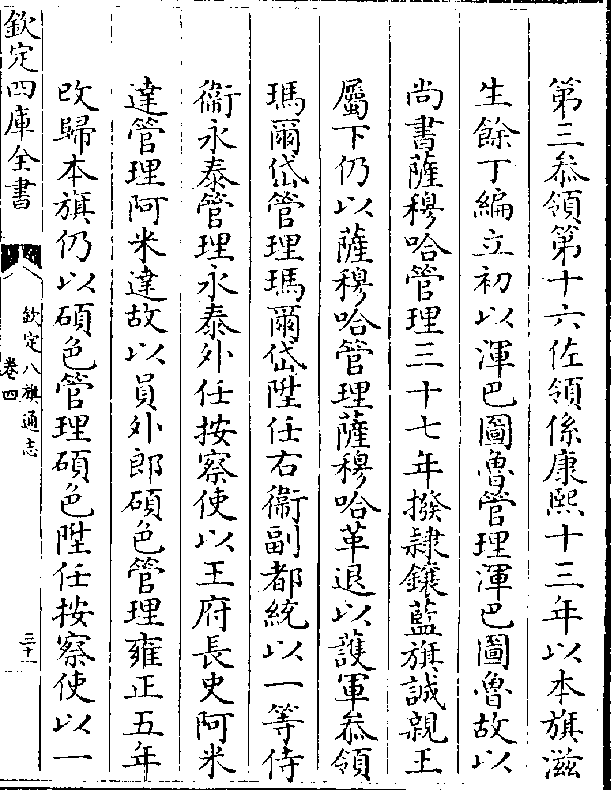 第三叅領第十六佐領係康熙十三年以本旗滋
生餘丁編立初以渾巴圖魯管理渾巴圖魯故以
尚書薩穆哈管理三十七年撥隷鑲藍旗誠親王
屬下仍以薩穆哈管理薩穆哈革退以護軍叅領
瑪爾岱管理瑪爾岱陞任右衞副都統以一等侍
衞永泰管理永泰外任按察使以王府長史阿米
達管理阿米達故以員外郎碩色管理雍正五年
改歸本旗仍以碩色管理碩色陞任按察使以一
欽定四庫全書
欽定八旗通志
卷四
三十一